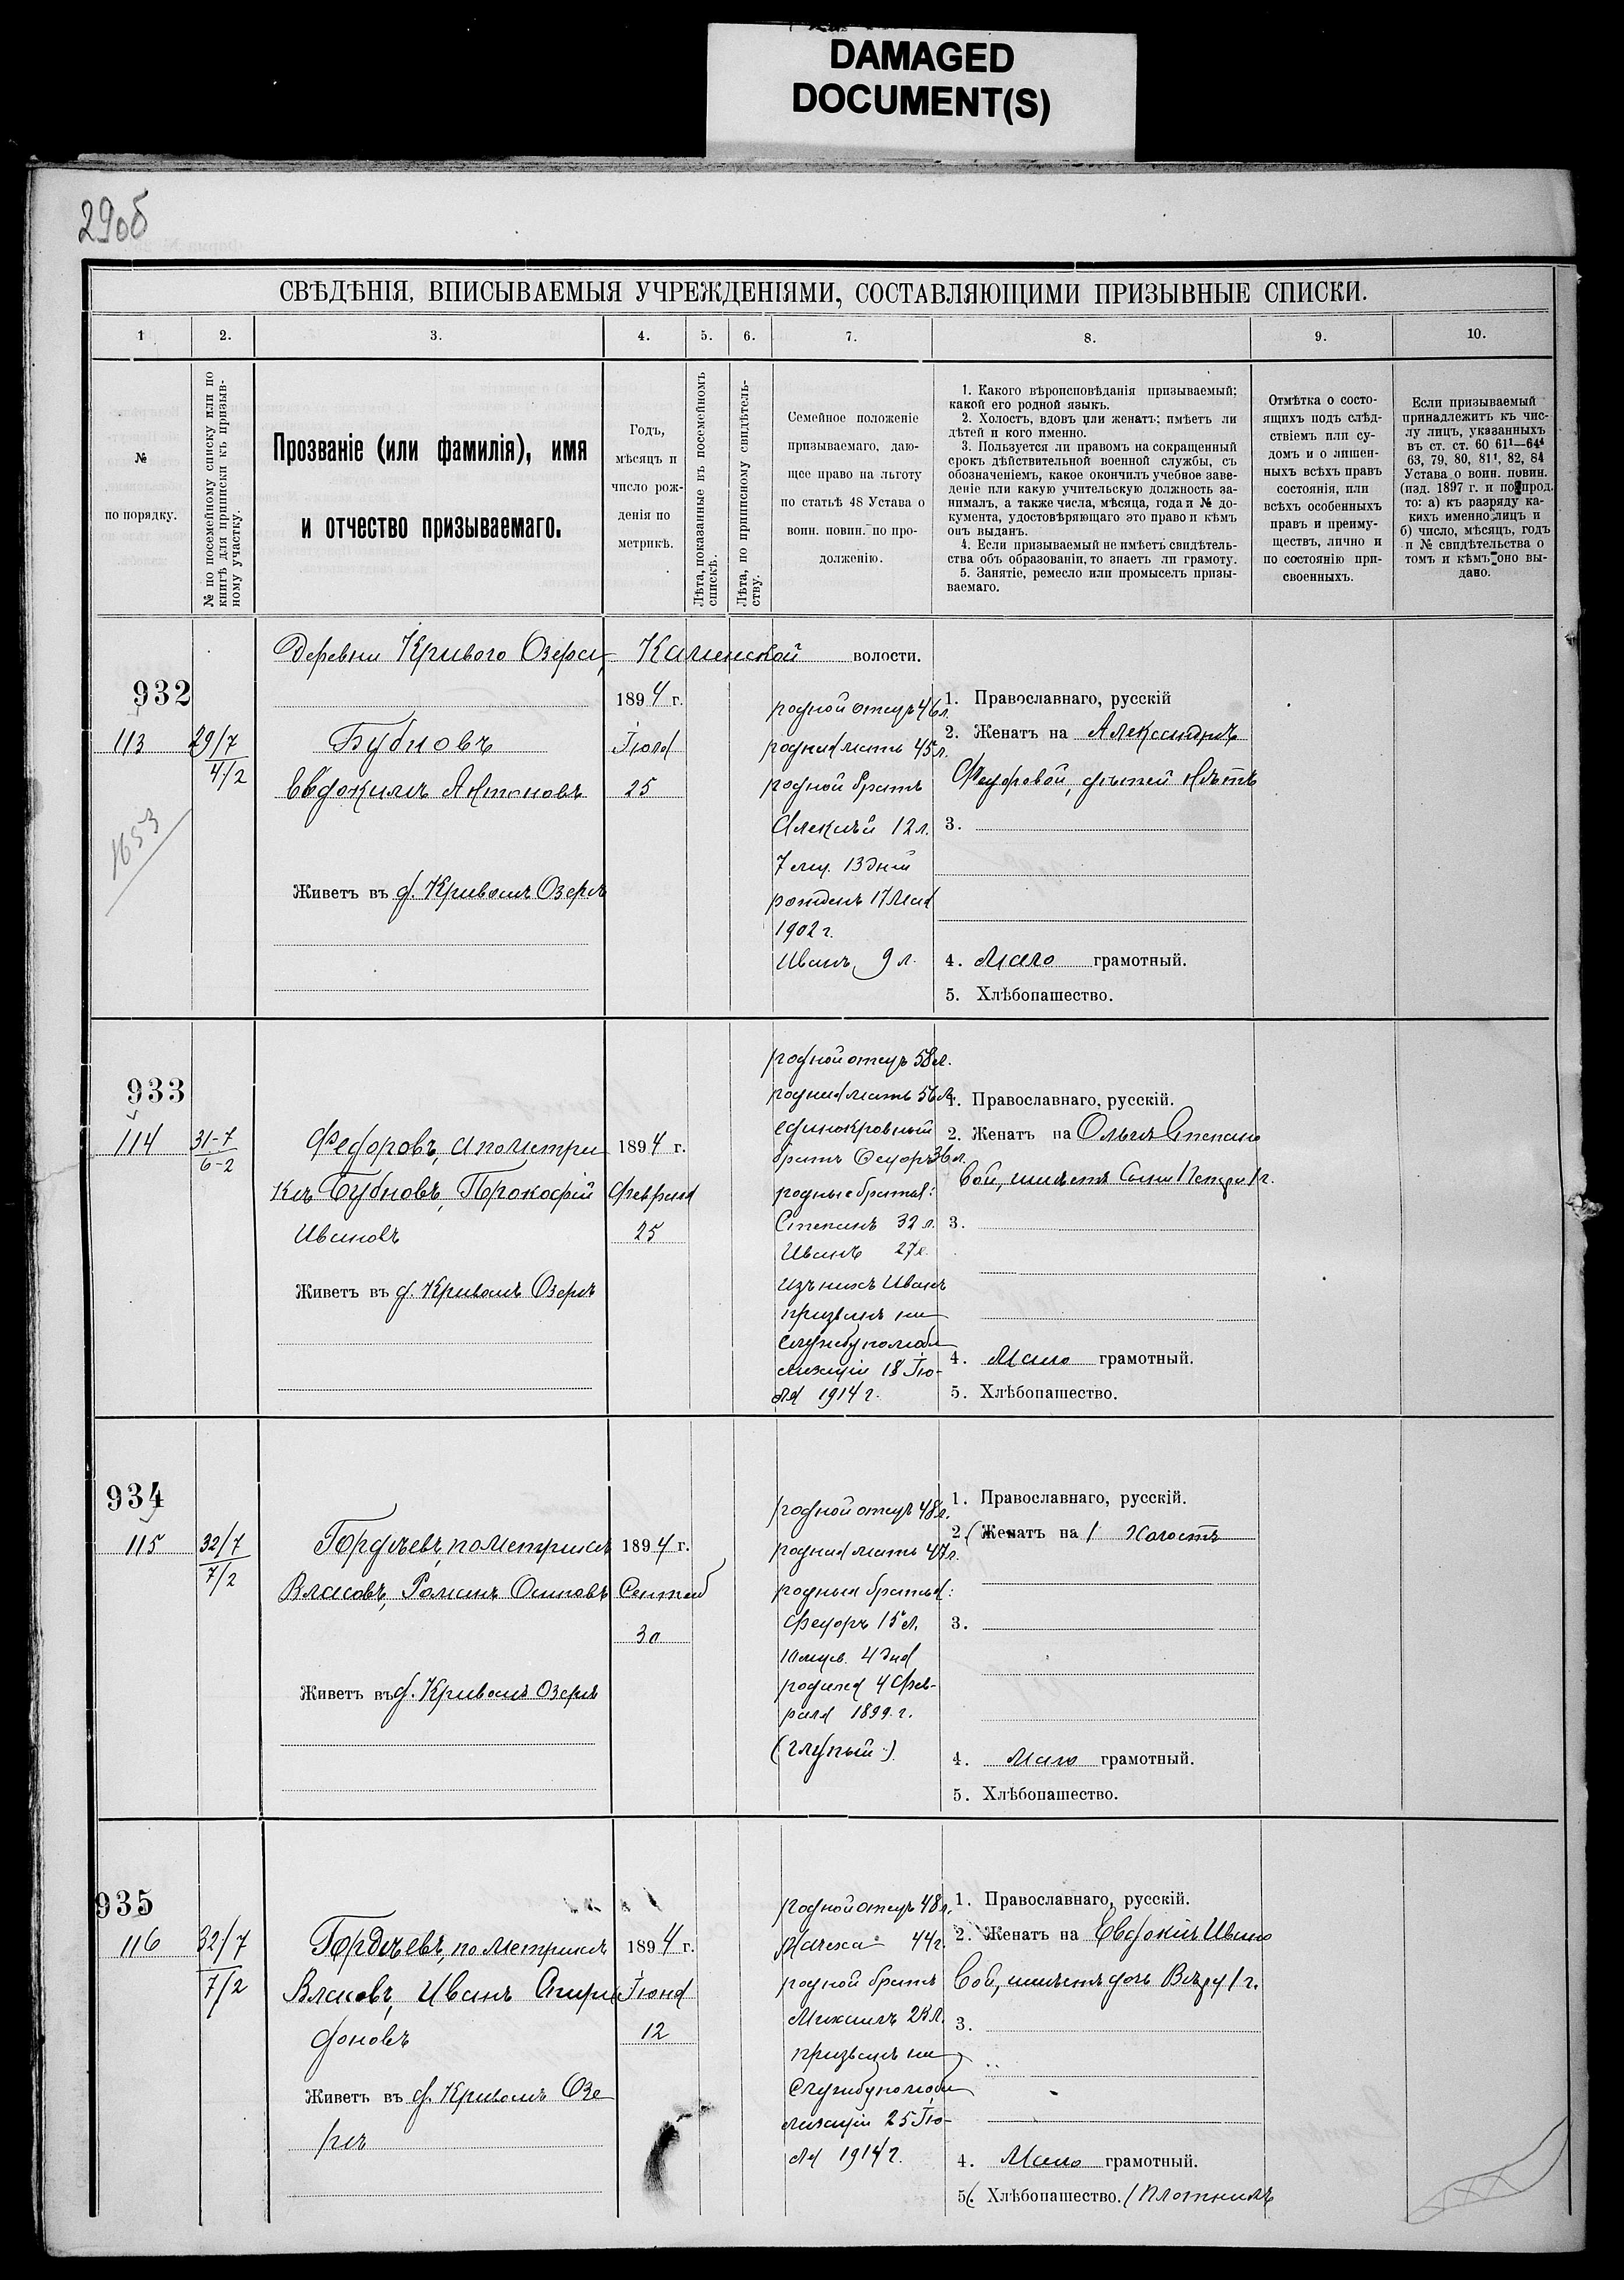 DAMAGED
DOCUMENT(S)
290б
СВѢДѢНІЯ, ВПИСЫВАЕМЫЯ УЧРЕЖДЕНІЯМИ, СОСТАВЛЯЮЩИМИ ПРИЗЫВНЫЕ СПИСКИ.
1
2.
3.
4.
5.
6.
7.
8.
9.
10.
№
по порядку.
№ по посемейному списку или по
книгѣ для приписки къ призыв-
ному участку.
Прозваніе (или фамилія), имя
и отчество призываемаго.
Годъ,
мѣсяцъ и
число рож-
денія по
метрикѣ.
Лѣта, показанные въ посемейномъ
спискѣ.
Лѣта, по приписному свидѣтель-
ству.
Семейное положеніе
призываемаго, даю-
щее право на льготу
по статьѣ 48 Устава о
воин. повин. по про-
долженію.
1. Какого вѣроисповѣданія призываемый;
какой его родной языкъ.
2. Холостъ, вдовъ или женатъ; имѣетъ ли
дѣтей и кого именно.
3. Пользуется ли правомъ на сокращенный
срокъ дѣйствительной военной службы, съ
обозначеніемъ, какое окончилъ учебное заве-
деніе или какую учительскую должность за-
нималъ, а также числа, мѣсяца, года и № до-
кумента, удостовѣряющаго это право и кѣмъ
онъ выданъ.
4. Если призываемый не имѣетъ свидѣтель-
ства объ образованіи, то знаетъ ли грамоту.
5. Занятіе, ремесло или промыселъ призы-
ваемаго.
Отмѣтка о состо-
ящихъ подъ слѣд-
ствіемъ или су-
домъ и о лишен-
ныхъ всѣхъ правъ
состоянія, или
всѣхъ особенныхъ
правъ и преиму-
ществъ, лично и
по состоянію при-
своенныхъ.
Если призываемый
принадлежитъ къ чис-
лу лицъ, указанныхъ
въ ст. ст. 60 61¹—64⁴
63, 79, 80, 81¹, 82, 84
Устава о воин. повин.
(изд. 1897 г. и по прод.
то: а) къ разряду ка-
кихъ именно лицъ и
б) число, мѣсяцъ, годъ
и № свидѣтельства о
томъ и кѣмъ оно вы-
дано.
Деревни Кривого Озера, Каменской волости.
932
113
29/7
4/2
1653
Бубновъ
Евдокимъ Антоновъ
Живетъ въ д. Кривомъ Озерѣ
1894 г.
Іюля
25
родной отецъ 46 л.
родная мать 45 л.
родной братъ
Алексѣй 12 л.
7 мѣц. 13 дней
рожденъ 17 Мая
1902 г.
Иванъ 9 л.
1. Православнаго, русскій
2. Женатъ на Александрѣ
Федоровой, дѣтей нѣтъ
3.
4. Мало грамотный.
5. Хлѣбопашество.
933
114
31-7
6-2
Федоровъ, а по метри
кѣ Бубновъ, Прокофій
Ивановъ
Живетъ въ д. Кривомъ Озерѣ
1894 г.
Февраля
25
родной отецъ 58 л.
родная мать 56 л.
единокровный
братъ Федоръ 36 л.
родные братья:
Степанъ 32 л.
Иванъ 27 л.
изъ нихъ Иванъ
призванъ на
службу по моби
лизаціи 18 Ію-
ля 1914 г.
1. Православнаго, русскій.
2. Женатъ на Ольгѣ Степано
вой, имѣетъ сына Петра 1 г.
3.
4. Мало грамотный.
5. Хлѣбопашество.
934
115
32/7
7/2
Гордѣевъ, по метрикѣ
Власовъ, Романъ Осиповъ
Живетъ въ д. Кривомъ Озерѣ
1894 г.
Сентяб
30
родной отецъ 48 л.
родная мать 47 л.
родныя братья:
Федоръ 15 л.
10 мѣсв. 4 дня
родился 4 Фев-
раля 1899 г.
(глупый)
1. Православнаго, русскій.
2. (Женатъ на) Холостъ
3.
4. Мало грамотный.
5. Хлѣбопашество.
935
116
32/7
7/2
Гордѣевъ, по метрикѣ
Власовъ, Иванъ Спири
доновъ
Живетъ въ д. Кривомъ Озе
рѣ
1894 г.
Іюня
12
родной отецъ 48 л.
Мачеха 44 г.
родной братъ
Михаилъ 23 л.
призванъ на
службу по моби
лизаціи 25 Ію-
ля 1914 г.
1. Православнаго, русскій.
2. Женатъ на Евдокіи Ивано
вой, имѣетъ дочь Вѣру 1 г.
3.
4. Мало грамотный.
5(. Хлѣбопашество.) Плотникъ